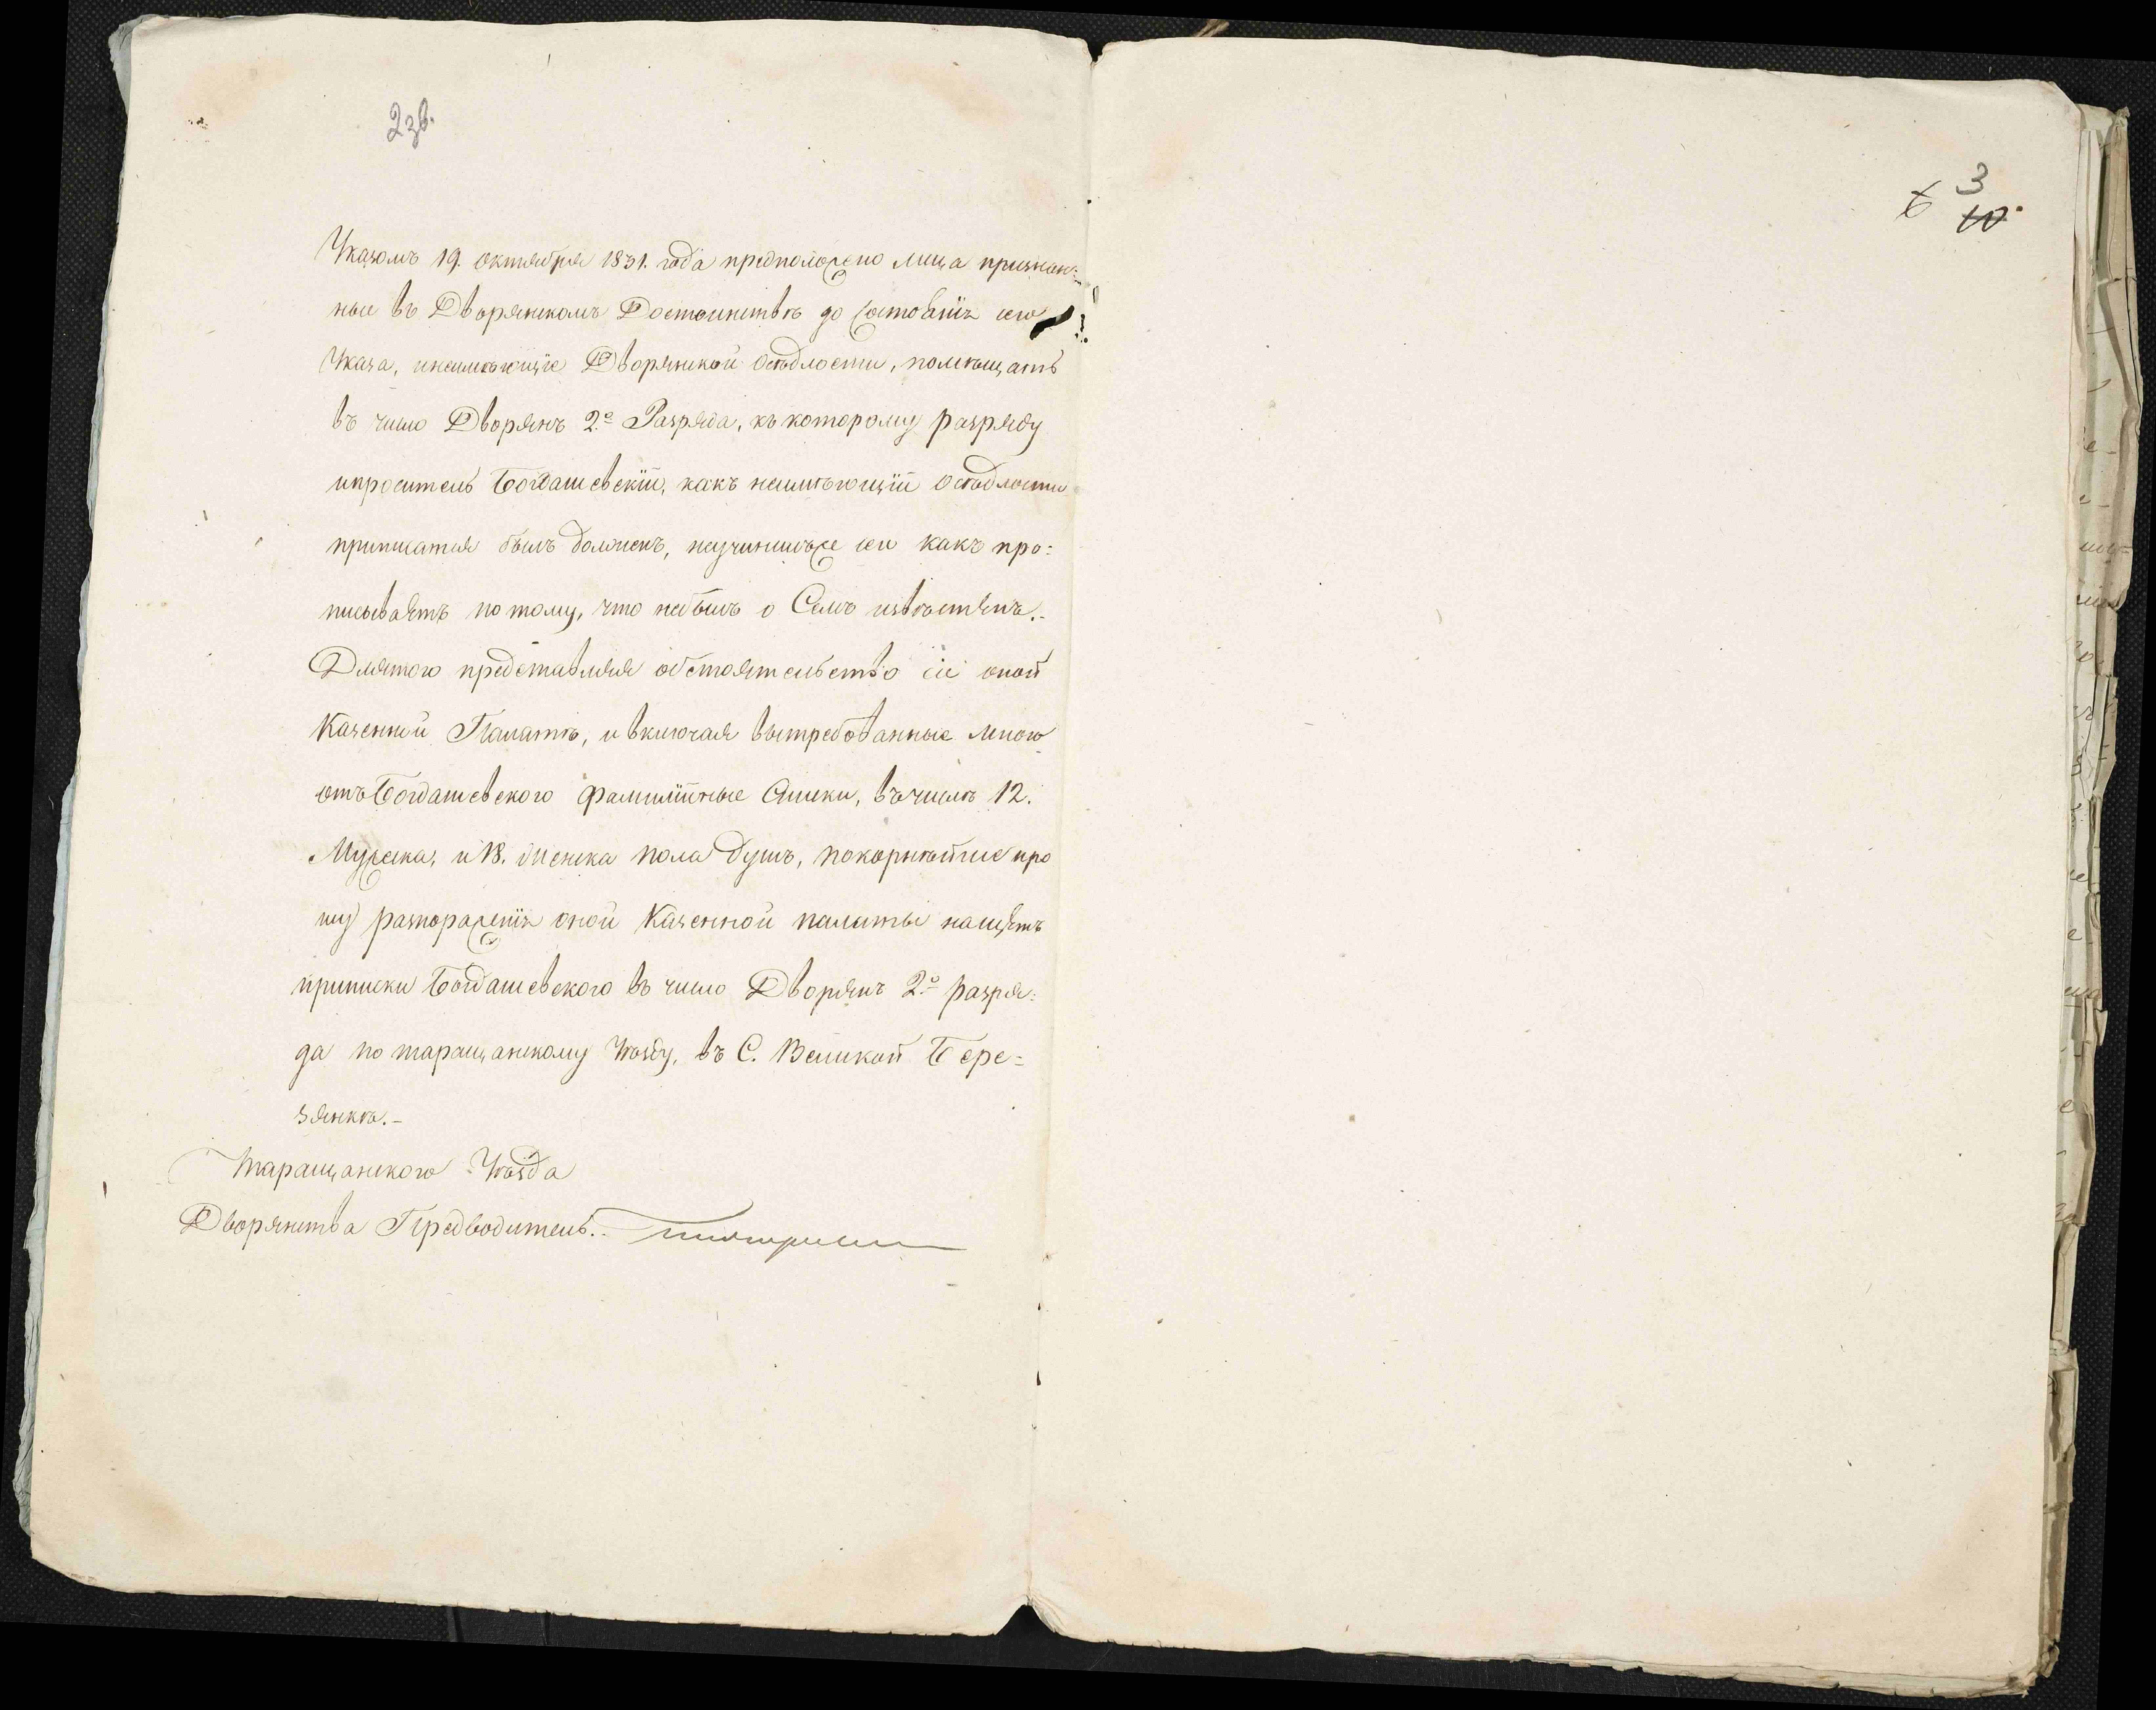 2зв.
Указомъ 19. октября 1831. года предположено лица признан=
ные въ Дворянскомъ Достоинствѣ до состоянія сего
Указа, инеимѣющіе Дворянской Осѣдлости, помѣщать
въ число Дворянъ 2го Разряда, къ которому разряду
ипроситель Богдашевскій, какъ неимѣющій Осѣдлости
приписатся былъ долженъ, неучинилъже сеи какъ про=
писываятъ по тому, что небылъ о Семъ извѣстянъ.-
Длятого представляя обстоятельство сіе оной
Казенной Палатѣ, и включая вытребованные мною
отъ Богдашевского фамилійные Списки, въ числѣ 12.
Мужеска, и 13. Женска пола душъ, покорнѣйше про
шу разпоряженія оной Казенной палаты нащетъ
приписки Богдашевского въ число Дворянъ 2го разря=
да по таращанскому Уѣзду, въ С. Великой Бере=
зянкѣ.-
Таращанского Уѣзда
Дворянства Предводитель.
6 3
10.